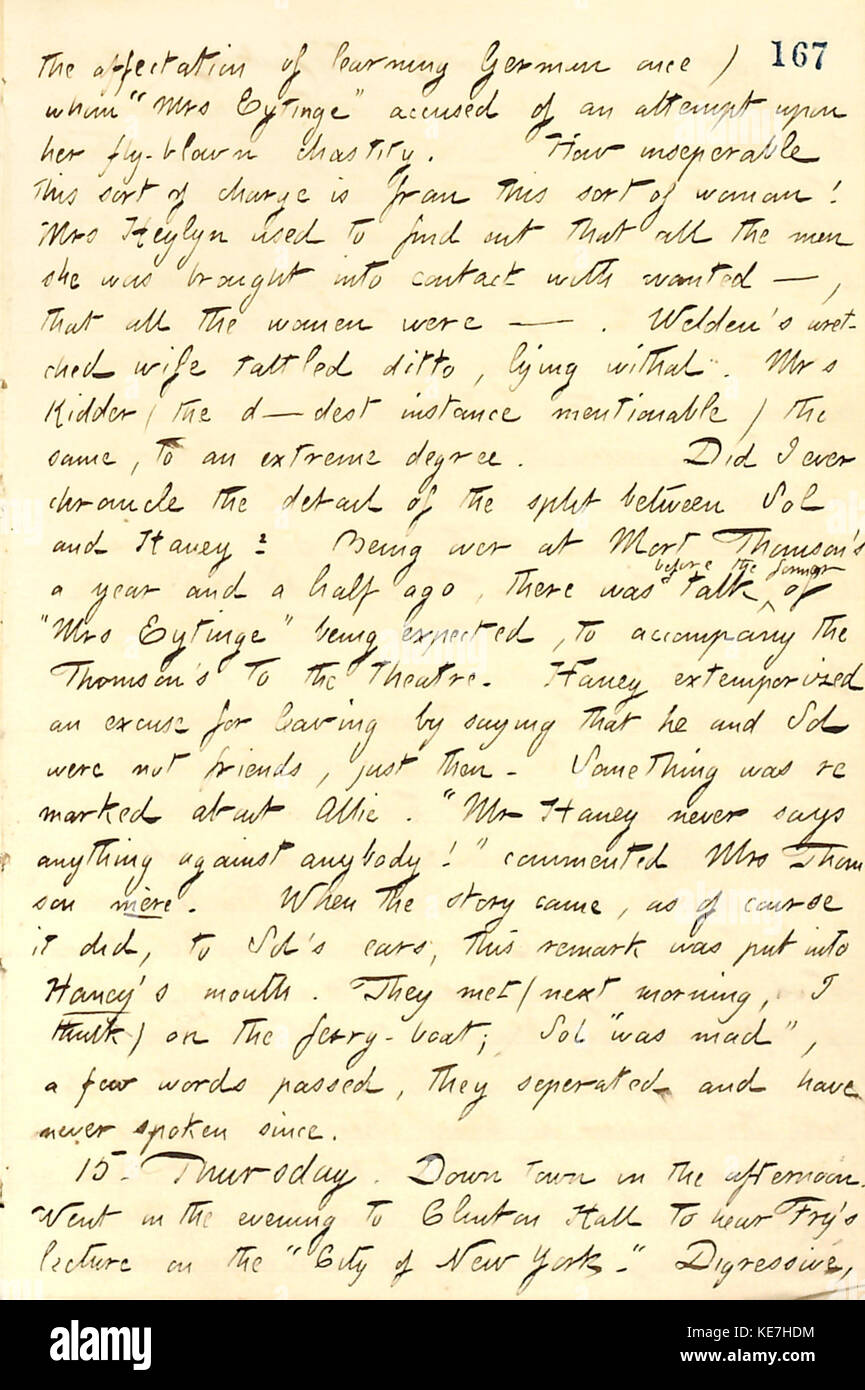 167
the affectation of learning German once)
whom "Mrs Eytinge" accused of an attempt upon
her fly-blown chastity. How inseperable
this sort of charge is from this sort of woman!
Mrs Heylyn used to find out that all the men
she was brought into contact with wanted —,
that all the women were —. Welden's wret-
ched wife tattled ditto, lying withal. Mrs
Kidder (the d—dest instance mentionable) the
same, to an extreme degree. Did I ever
chronicle the detail of the split between Sol
and Haney? Being over at Mort Thomson's
before the former
a year and a half ago, there was talk ^ of
"Mrs Eytinge" being expected, to accompany the
Thomson's to the theatre. Haney extemporized
an excuse for leaving by saying that he and Sol
were not friends, just then. Something was re
marked about Allie. "Mr Haney never says
anything against anybody!" commented Mrs Thom
son mère. When the story came, as of course
it did, to Sol's ears, this remark was put into
Haney's mouth. They met (next morning, I
think) on the ferry-boat; Sol "was mad",
a few words passed, they seperated and have
never spoken since.
15. Thursday. Down town in the afternoon.
Went in the evening to Clinton Hall to hear Fry's
lecture on the "City of New York." Digressive,
alamy
Image ID: KE7HDM
www.alamy.com